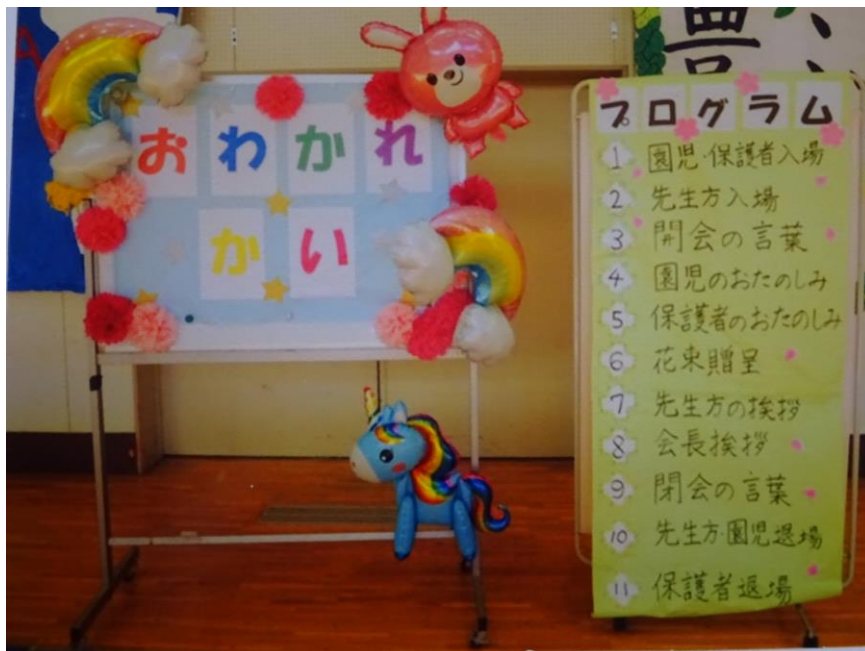 おわかれ
かい
プログラム
1 園児・保護者入場
2 先生方入場
3 開会の言葉
4 園児のおたのしみ
5 保護者のおたのしみ
6 花束贈呈
7 先生方の挨拶
8 会長挨拶
9 閉会の言葉
10 先生方・園児退場
11 保護者退場